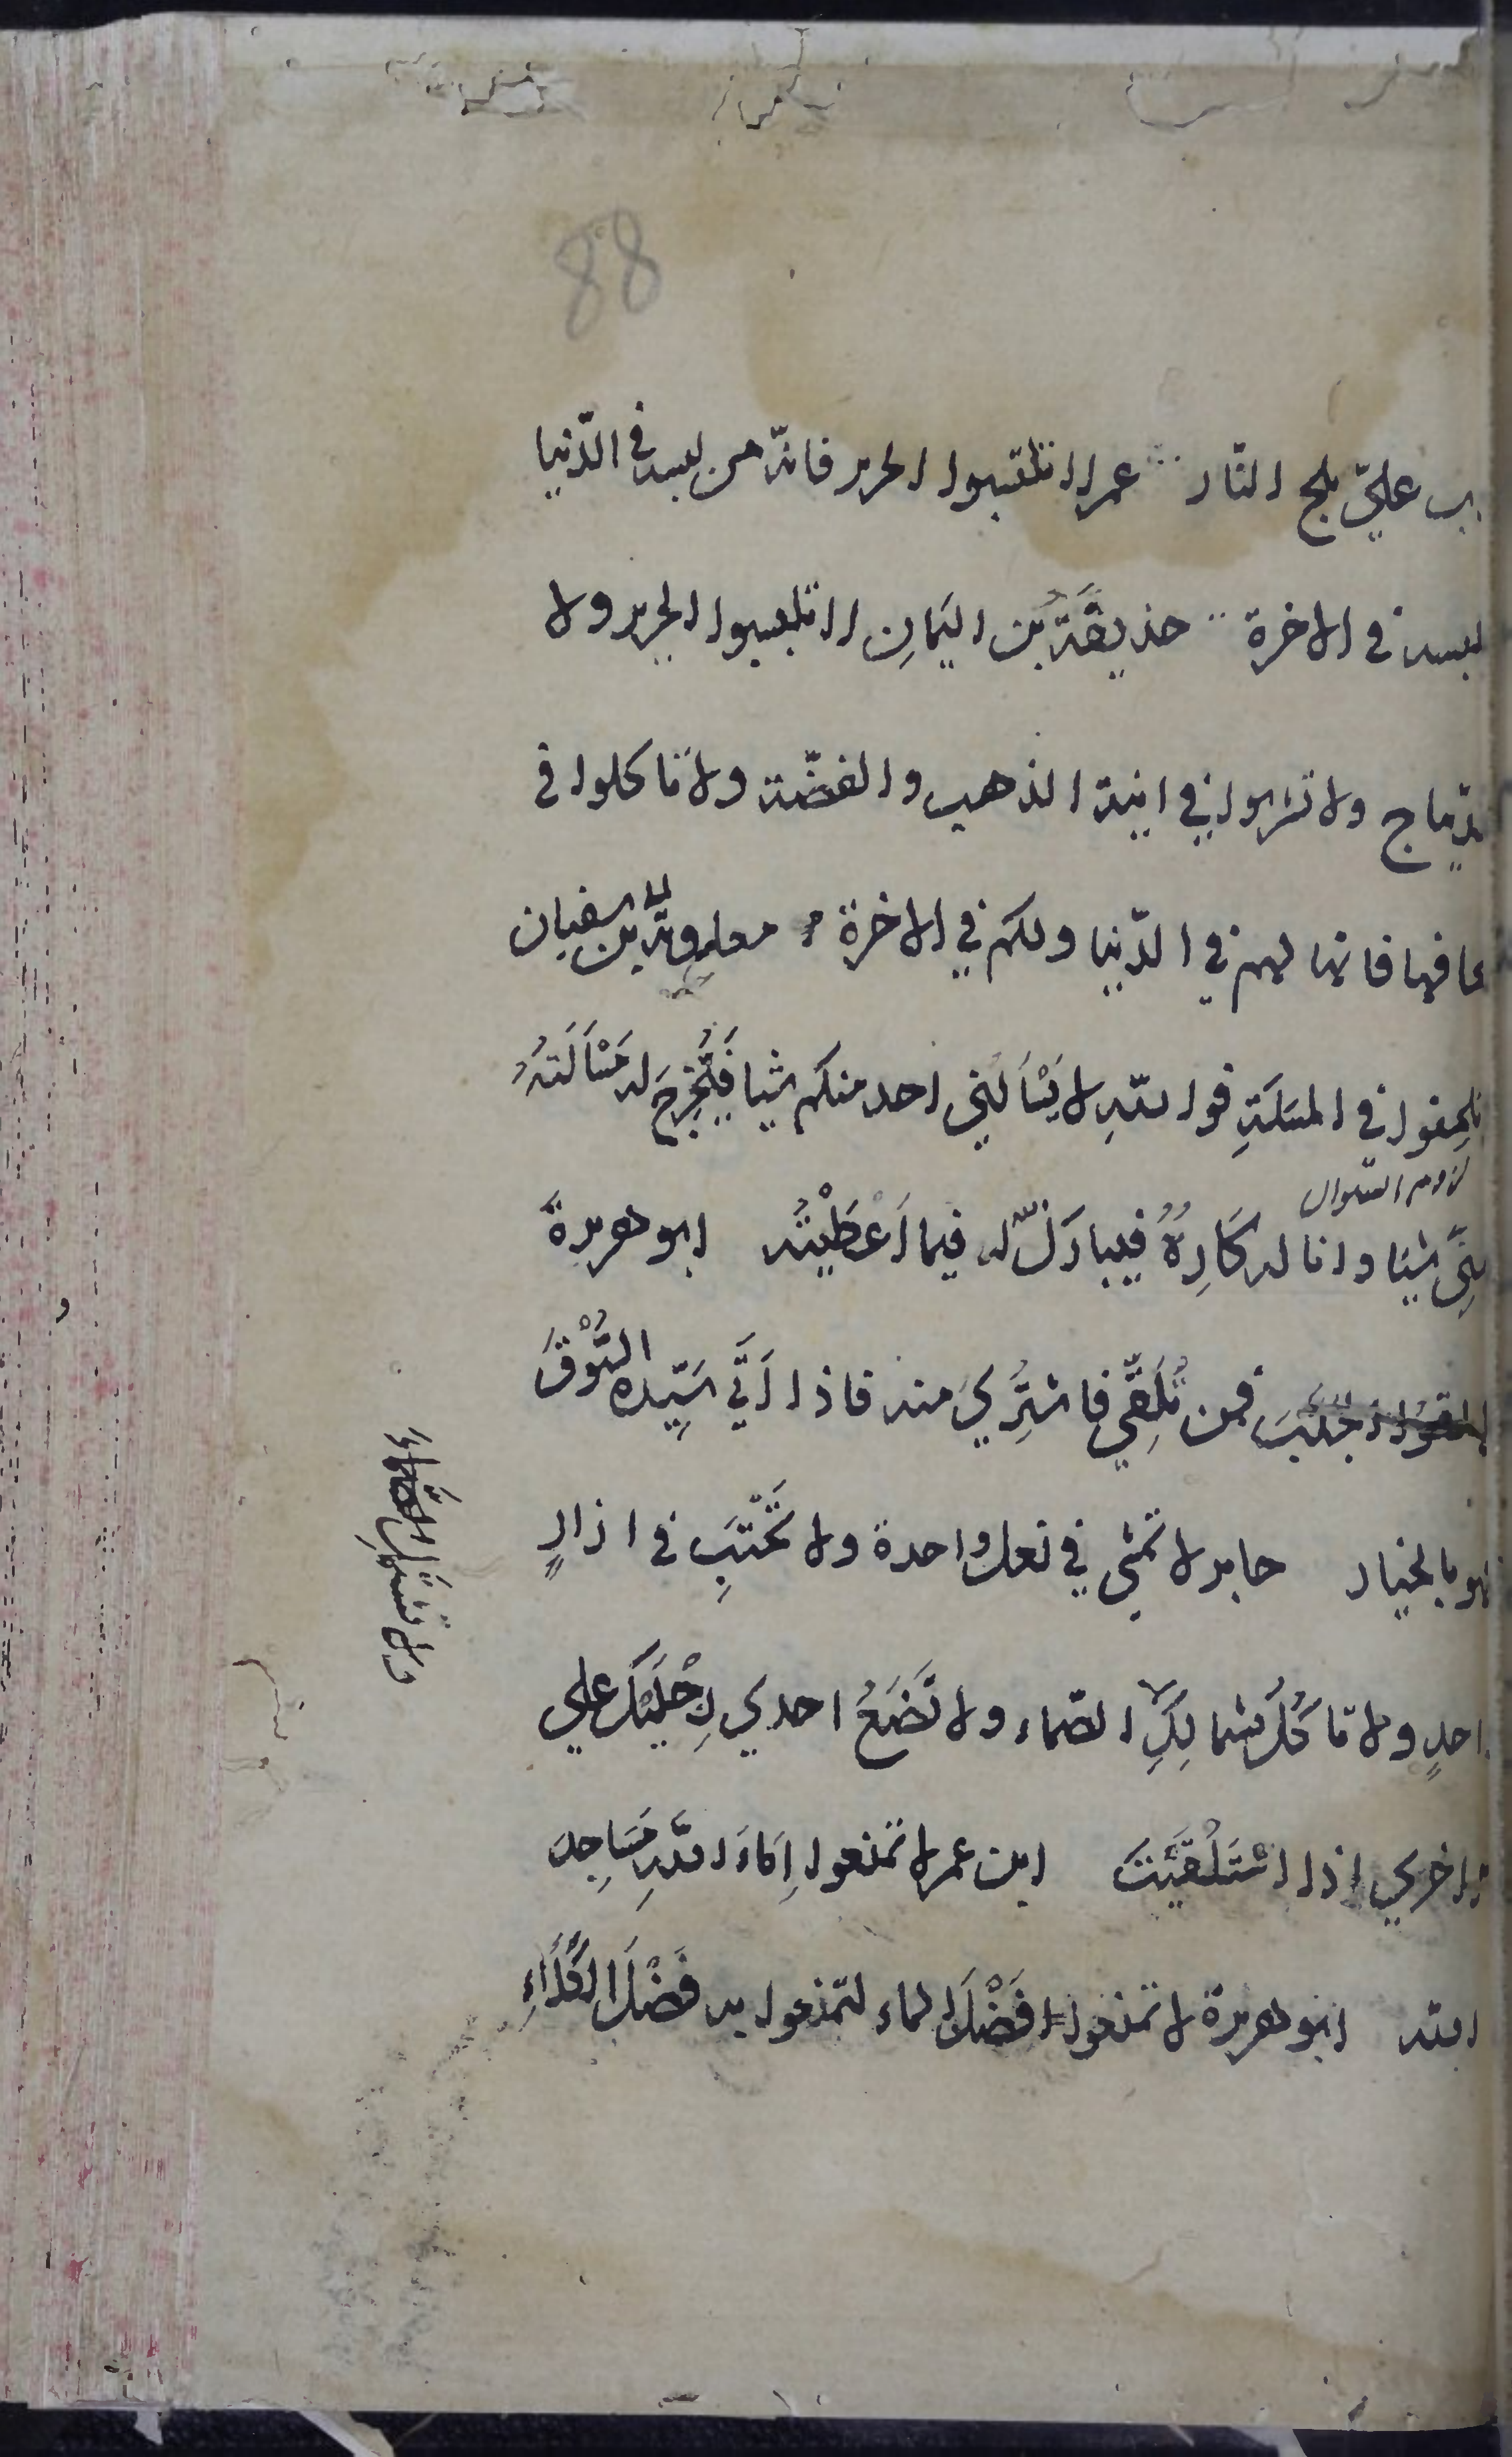 88
علىّ يلج النّار عمر لا تلبسوا الحرير فانه من لبسه فى الدّنيا
يلبسه فى الاخرة حذيفَةُ بن اليَمانِ لا تلبسوا الحرير ولا
الدّيباج ولا تشربوا فى انية الذهب والفضّة ولا تاكلوا فى
صحافها فانها لهم فى الدّنيا ولكم فى الاخرة معاوية بن ابى سفيان
تلحِفوا فى المسَلَةِ فو اللهِ لا يَسْأَلُنِى احد منكم شيا فَتُخْرِجَ له مَسْأَلَتُهُ
لازم السّوال
مِنِّى شيئا وانا له كَارِهٌ فيبارَكَ له فيما اَعْطَيْتُه ابو هريرة
تلقوا الجَلَبَ فمن تُلُقِّىَ فاشتُرِىَ منه فاذا اَتَى سَيِّدُه السُّوْقَ
فهو بالخيار جابر لا تمشى فى نعل واحدة ولا تَحْتَبِ فى ازارٍ
واحدٍ ولا تاكُلْ بشمالِكَ الصّماء ولا تَضَعْ احدى رِجْلَيْكَ على
ولا تشتمل الصّمّاء
الاخرى اذا اسْتَلْقَيْتَ ابن عمر لا تمنعوا اِمَاءَ اللهِ مَسَاجِدَ
الله ابو هريرة لا تمنعوا فَضْلَ الماء لتمنعوا به فَضْلَ الكَلَاءِ